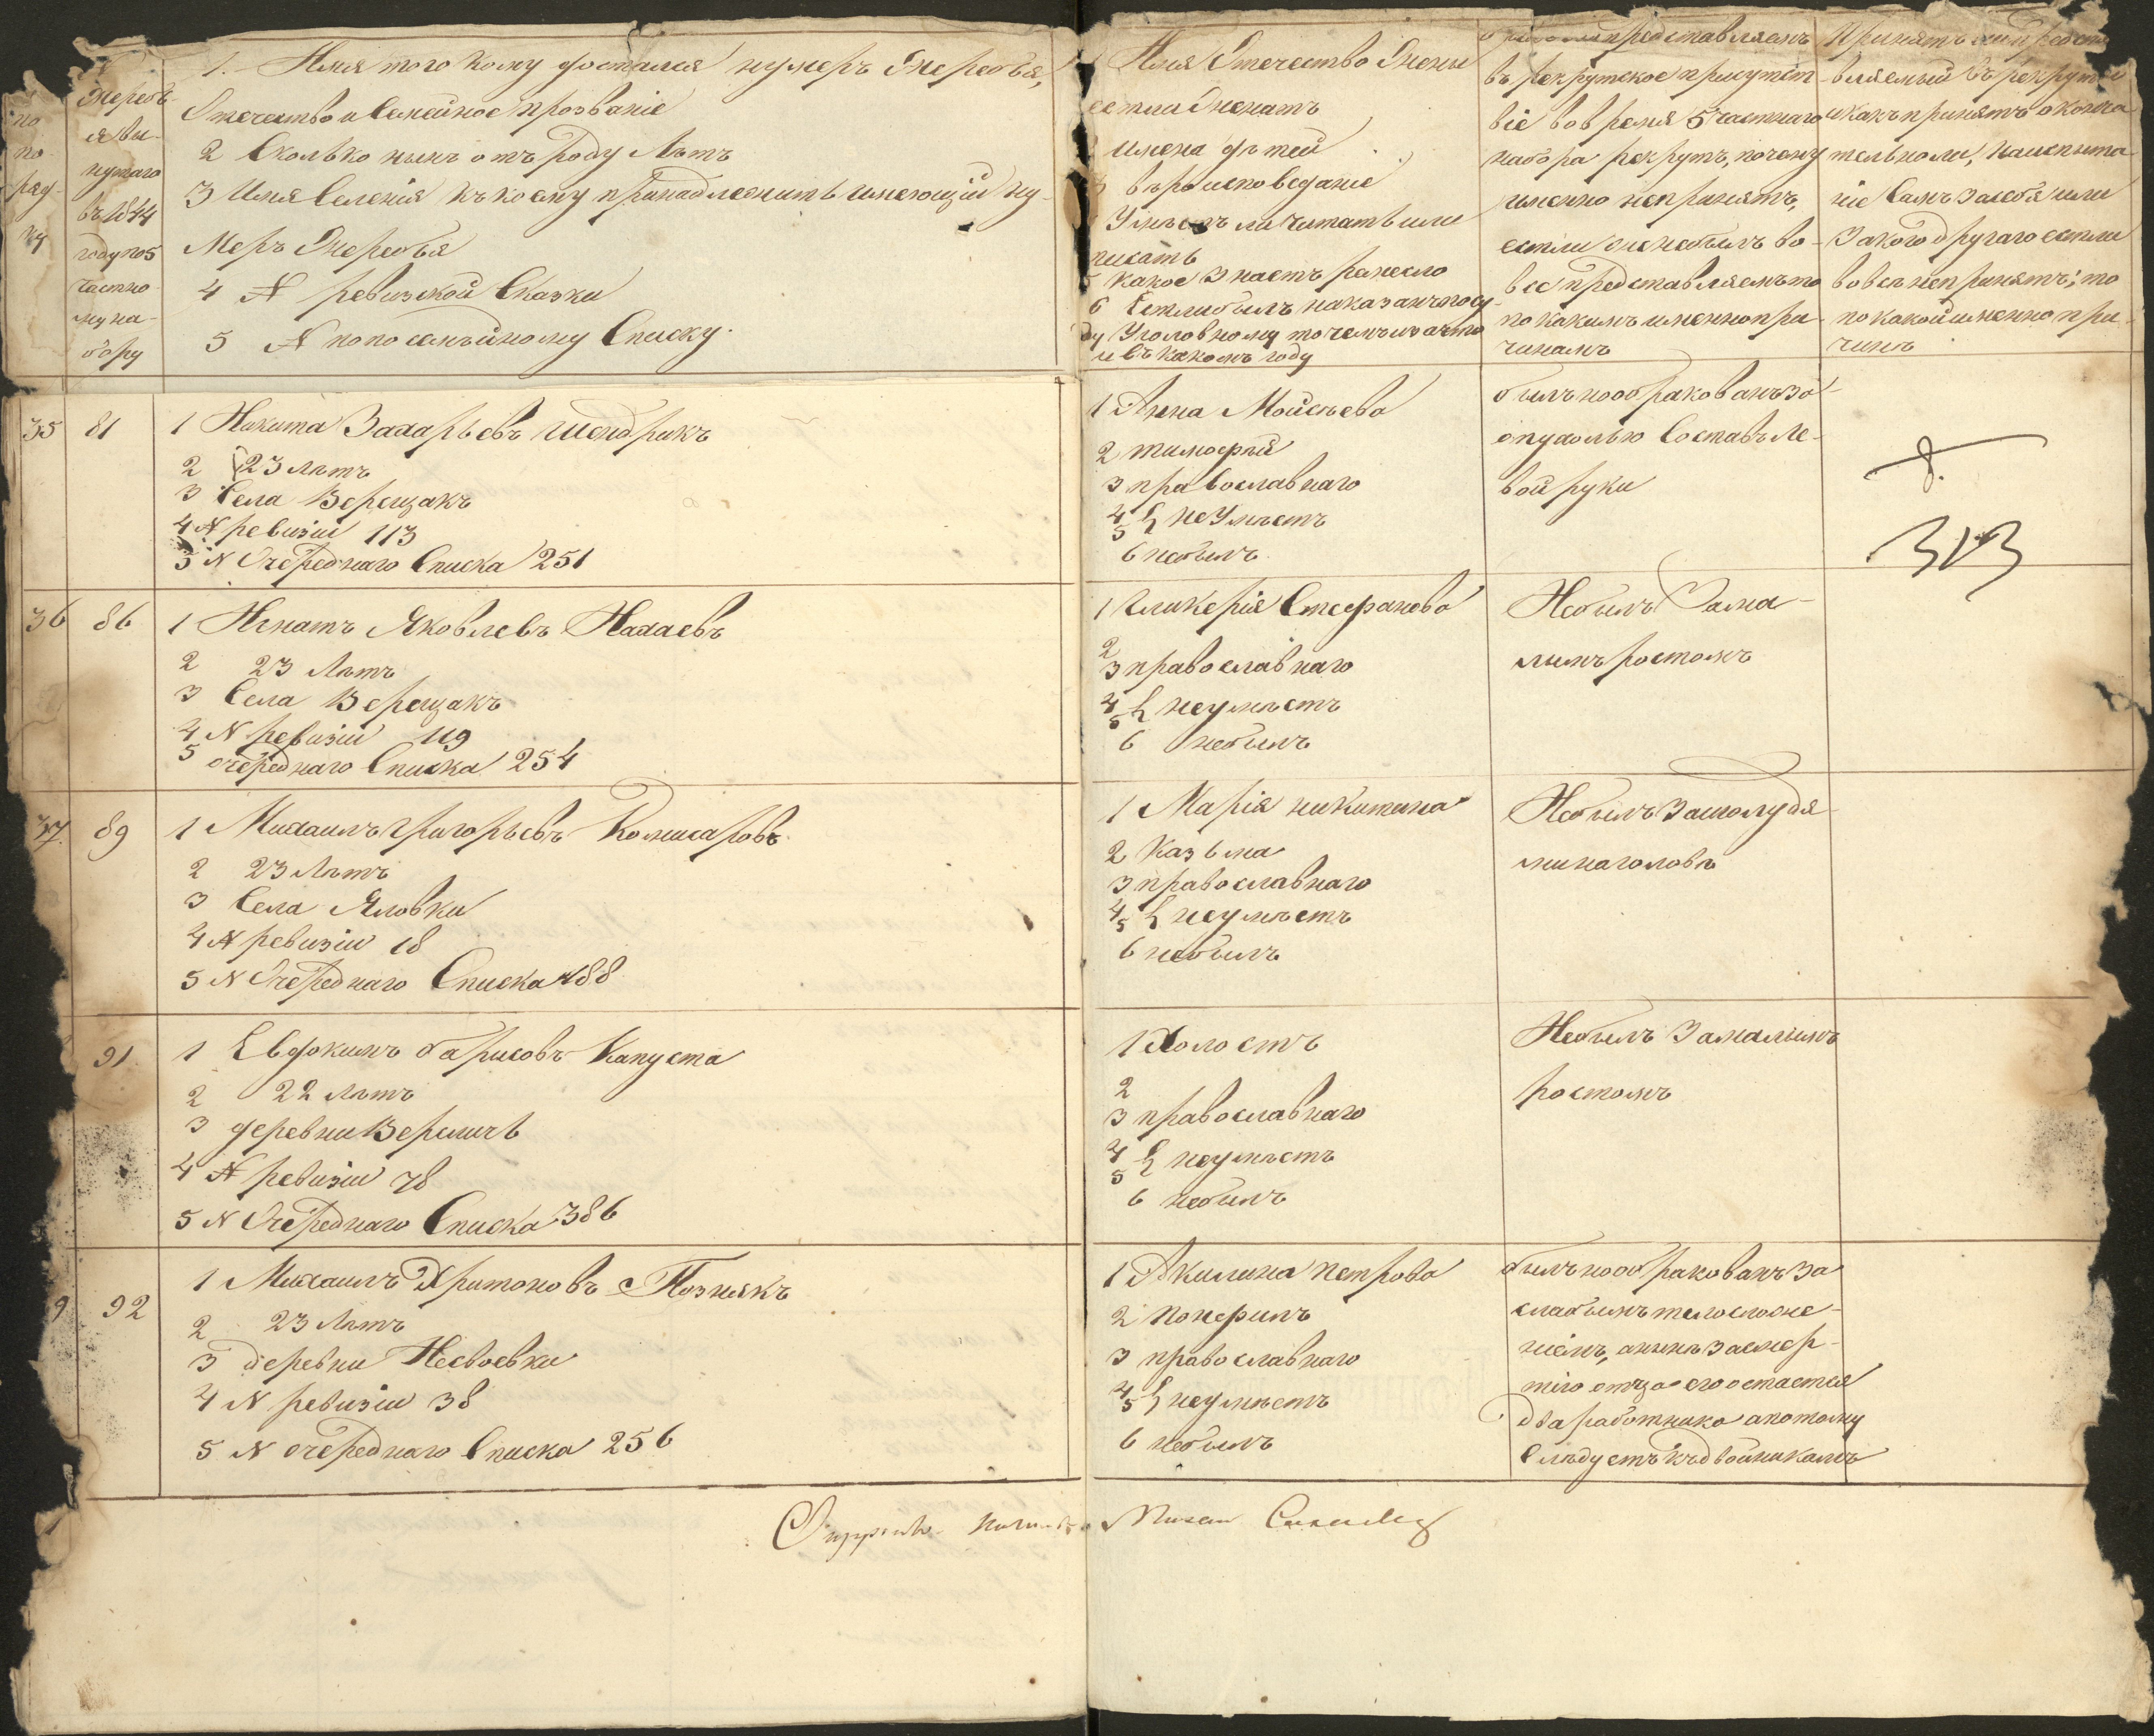 по
по
ряд-
ку
Жеребь
я вы-
нутаго
въ 1844
году по 5
частно
му на-
бору
1. Имя того кому достался нумеръ Жеребья,
Отечество и Семейное прозваніе
2 Сколько нынѣ отъ роду Лѣтъ
3 Имя Селенія къ коему принадлежитъ имеющій ну-
меръ Жеребья
4 N ревизской Сказки
5 N по посемѣйному Списку.
Имя Отечество Жены
естли Женатъ
2 имена дѣтей
3 вѣроисповеданіе
4 Умѣетъ ли Читать или
писать
5 Какое Знаетъ ремесло
6 Естли былъ наказанъ по су-
ду Уголовному то чемъ за что
и въ какомъ году
представляемъ
въ рекрутское присутст-
віе во время 5 частнаго
набора рекрутъ, почему
именно непринятъ,
естли же небылъ во-
все представляемъ то
по какимъ именно при-
чинамъ
Принятъ ли предста-
вляемый въ рекруты
и какъ принятъ оконча
тельно ли, на испыта
ніе Самъ За себя или
За кого другаго естли
вовсе непринятъ, то
по какой именно при-
чинѣ
35 81
1 Никита Захарьевъ Шендрикъ
2 23 Лѣтъ
3 Села Верещакъ
4 N ревизіи 113
5 N Очереднаго Списка 251
1 Анна Мойсѣева
2 тимофѣй
3 православнаго
4
5 неУмѣетъ
6 небылъ
былъ но обракованъ за
опухолью Составъ Ле-
вой руки
36 86
1 Игнатъ Яковлевъ Надаевъ
2 23 Лѣтъ
3 Села Верещакъ
4 N ревизіи 119
5 очереднаго Списка 254
1 Гликерія Стефанова
2
3 православнаго
4
5 неумѣетъ
6 небылъ
Небылъ За ма-
лымъ ростомъ
37. 89
1 Михаилъ Григорьевъ Комисаровъ
2 23 Лѣтъ
3 Села Яловки
4 N ревизіи 18
5 N Очереднаго Списка 188
1 Марія никитина
2 Казьма
3 православнаго
4
5 неумѣетъ
6 небылъ
Небылъ За шолудя-
ми на головѣ
91.
1 Евдокимъ барисовъ Капуста
2 22 Лѣтъ
3 деревни Веремичь
4 N ревизіи 78
5 N Очереднаго Списка 386
1 Холостъ
2
3 православнаго
4
5 неумѣетъ
6 небылъ
Небылъ За малымъ
ростомъ
9 92
1 Михаилъ Харитоновъ Познякъ
2 23 Лѣтъ
3 деревни Несвоевки
4 N ревизіи 38
5 N очереднаго Списка 256
1 Акилина петрова
2 понфилъ
3 православнаго
4
5 неумѣетъ
6 небылъ
былъ но обракованъ за
слабымъ телосложе-
ніемъ, а нынѣ За смер-
тію отца его остается
два работника а потому
Слѣдуетъ къ двойникамъ